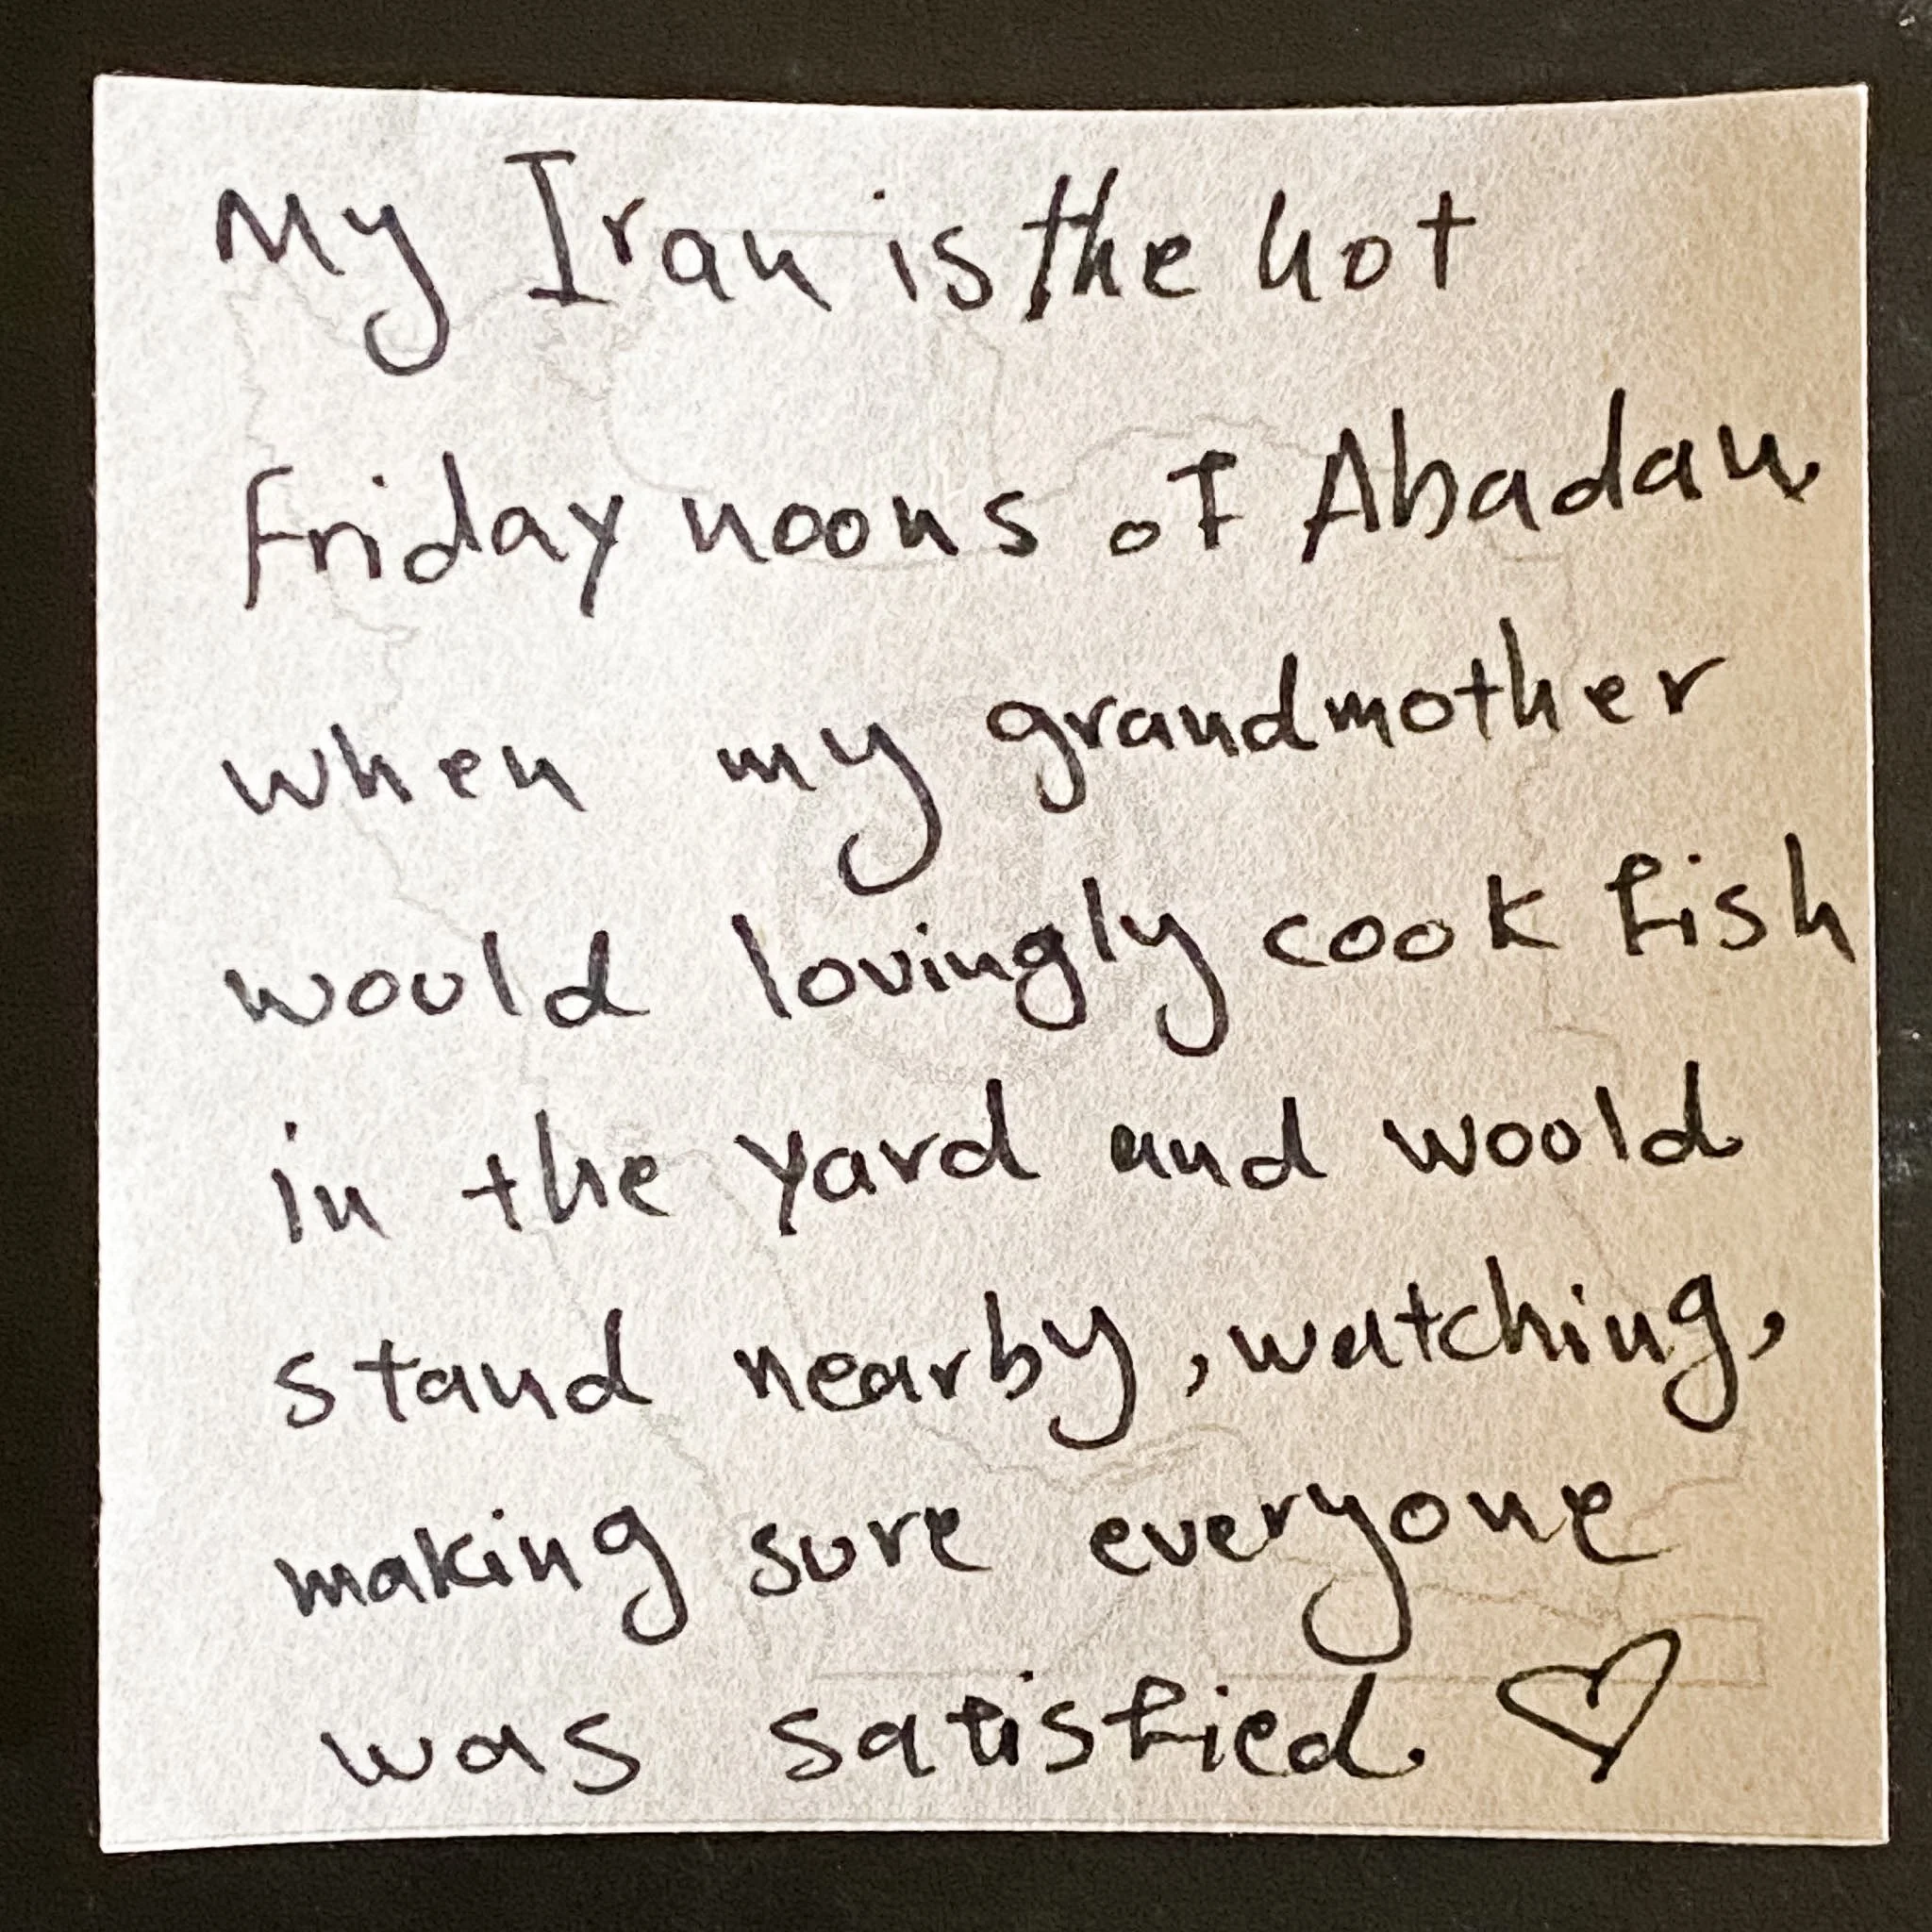 My Iran is the hot
Friday noons of Abadan
when my grandmother
would lovingly cook fish
in the yard and would
stand nearby, watching,
making sure everyone
was satisfied. ♡